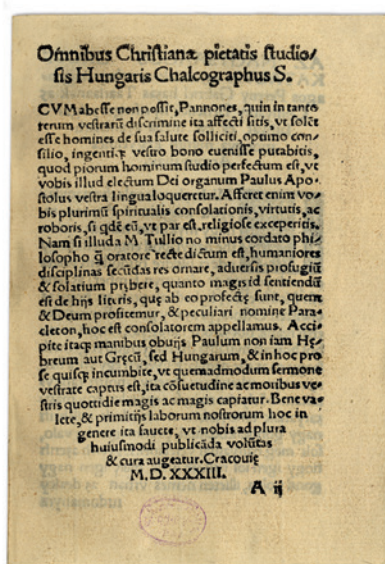 Omnibus Christianæ pietatis studio/
sis Hungaris Chalcographus S.
CVM abesse non possit, Pannones, quin in tanto
rerum vestrarū discrimine ita affecti sitis, vt solēt
esse homines de sua salute solliciti, optimo con/
silio, ingentiq; vestro bono euenisse putabitis,
quod piorum hominum studio perfectum est, vt
vobis illud electum Dei organum Paulus Apo/
stolus vestra lingua loqueretur. Afferet enim vo/
bis plurimū spiritualis consolationis, virtutis, ac
roboris, si qdē eū, vt par est, religiose exceperitis.
Nam si illud a M. Tullio no minus cordato phi/
losopho q̄ oratore recte dictum est, humaniores
disciplinas secūdas res ornare, aduersis profugiū
& solatium prębere, quanto magis id sentiendū
est de hijs literis, quę ab eo profectę sunt, quem
& Deum profitemur, & peculiari nomine Para/
cleton, hoc est consolatorem appellamus. Acci/
pite itaq; manibus obuijs Paulum non iam Hę/
breum aut Gręcū, sed Hungarum, & in hoc pro
se quisq; incumbite, vt quemadmodum sermone
vestrate captus est, ita cōsuetudine ac moribus ve/
stris quottidie magis ac magis capiatur. Bene va/
lete, & primitijs laborum nostrorum hoc in
genere ita fauete, vt nobis ad plura
huiusmodi publicāda volūtas
& cura augeatur. Cracouię
M. D. XXXIII.
A ij